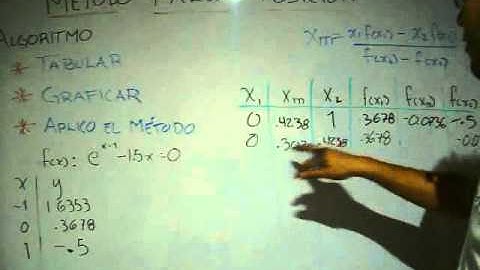 METODO FALSA POSICION
ALGORITMO
* TABULAR
* GRAFICAR
* APLICO EL METODO
f(x): e^x-1 - 1.5x = 0
x y
-1 1.6353
0 .3678
1 -.5
Xm = x₁f(x₂) - x₂f(x₁)
f(x₂) - f(x₁)
X₁ Xm X₂ f(x₁) f(x₂)
0 .4238 1 .3678 -0.0736 -.5
0 .4238 .3678